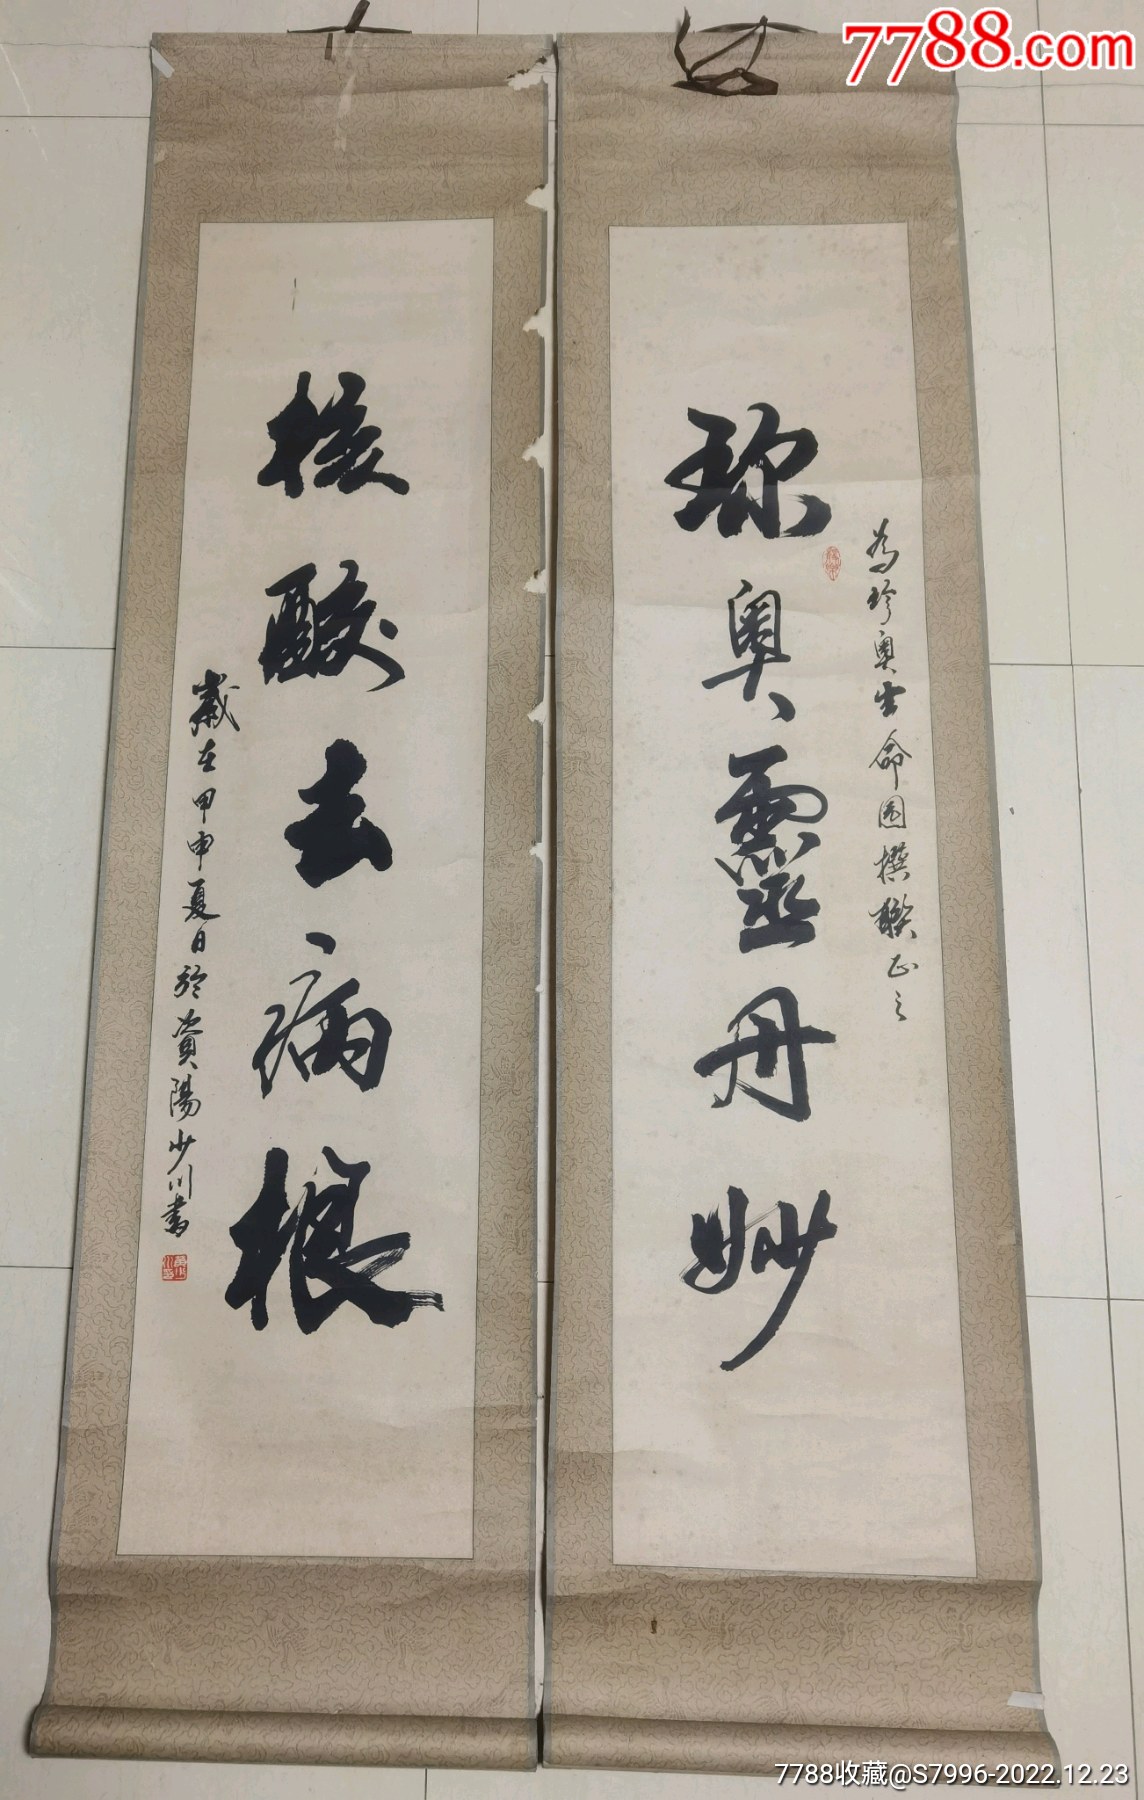 7788.com
为珍奥生命园撰联正之
珎奥靈丹妙
核酸去病根
歲在甲申夏日於資陽少川書
7788收藏@S7996-2022.12.23